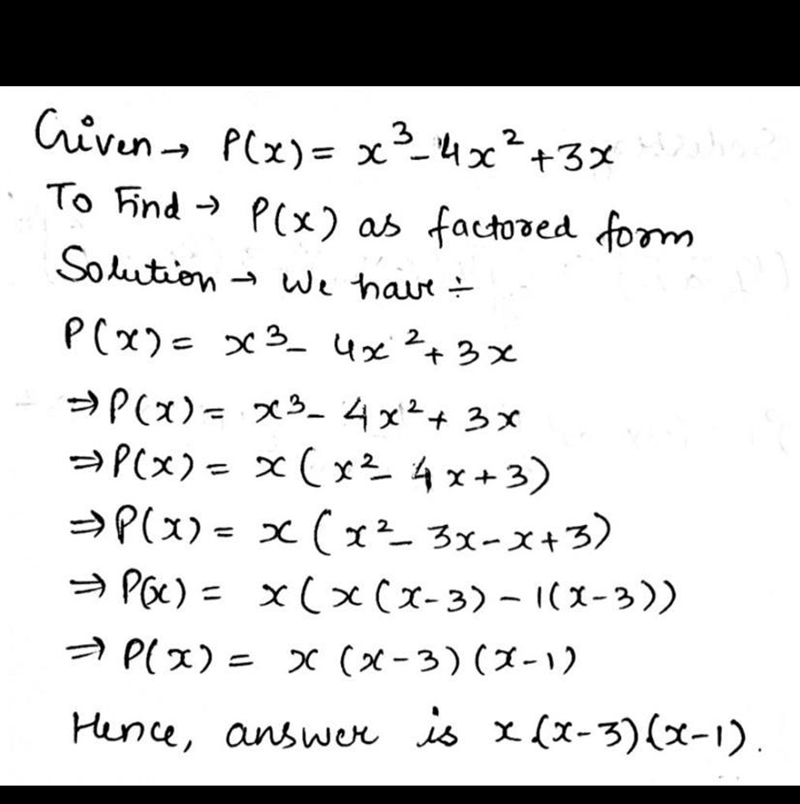 Given → P(x) = x³ - 4x² + 3x
To Find → P(x) as factored form
Solution → We have ÷
P(x) = x³ - 4x² + 3x
⇒ P(x) = x³ - 4x² + 3x
⇒ P(x) = x (x² - 4x + 3)
⇒ P(x) = x (x² - 3x - x + 3)
⇒ P(x) = x (x (x-3) - 1(x-3))
⇒ P(x) = x (x-3) (x-1)
Hence, answer is x (x-3) (x-1).